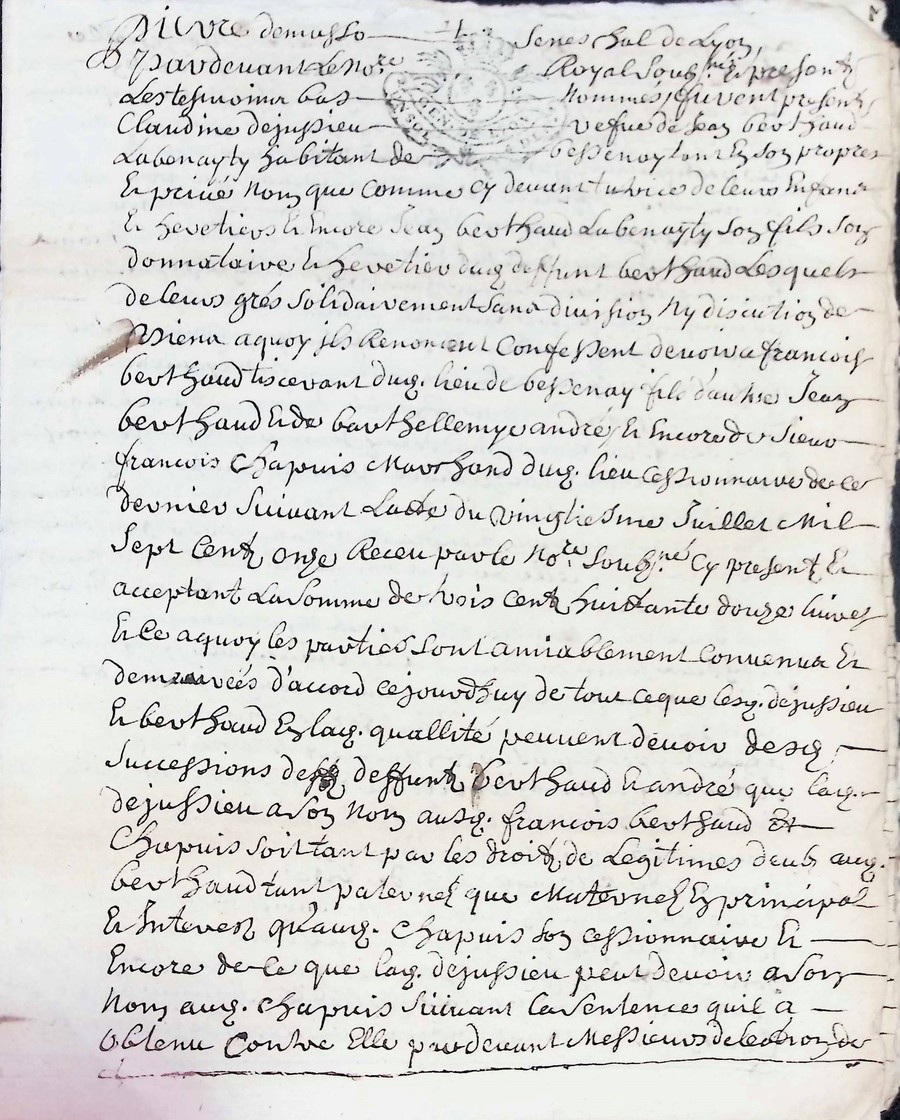 Pierre demusso senechal de Lyon,
Pardevant Le No.re Royal Soubs.né Et presentz
Les tesmoins bas Nommés, fu. present
Claudine dejussieu vefue de Jean berthaud
Labenayty habitant de bessenay tant En son propre
Et privé Nom que comme cy devant tutrice de leurs Enfans
Et heretiers Et Encore Jean berthaud Labenayty son fils son
donnataire Et heretier dud. deffunt berthaud Lesquels
de leurs grés solidairement sans division Ny discution de
biens aquoy ils Renoncent Confessent devoir a francois
berthaud tisserant dud. lieu de bessenay fils d'autre Jean
berthaud Et de barthellemye andré, Et Encore de sieur
francois Chapuis Marchand dud. lieu cessionnaire de ce
dernier suivant Lacte du vingtiesme Juillet Mil
Sept Centz onze Receu par le No.re Soubs.né Cy presentz Et
acceptant La somme de trois centz huittante douze livres
Et ce aquoy les parties sont amiablement convenus Et
demeurées d'accord cejourdhuy de tout ceque lesd. dejussieu
Et berthaud En lad. quallité peuvent devoir desd.
Successions des deffuntz berthaud Et andré que lad.
dejussieu a son Nom ausd. francois berthaud Et
Chapuis soit tant par les droitz de Legitimes deubs aud.
berthaud tant paternel que Maternel En principal
Et Interestz qu'aud. Chapuis son cessionnaire Et
Encore de ce que lad. dejussieu peut devoir a son
Nom aud. chapuis suivant la sentence quil a
obtenu Contre Elle pardevant Messieurs de